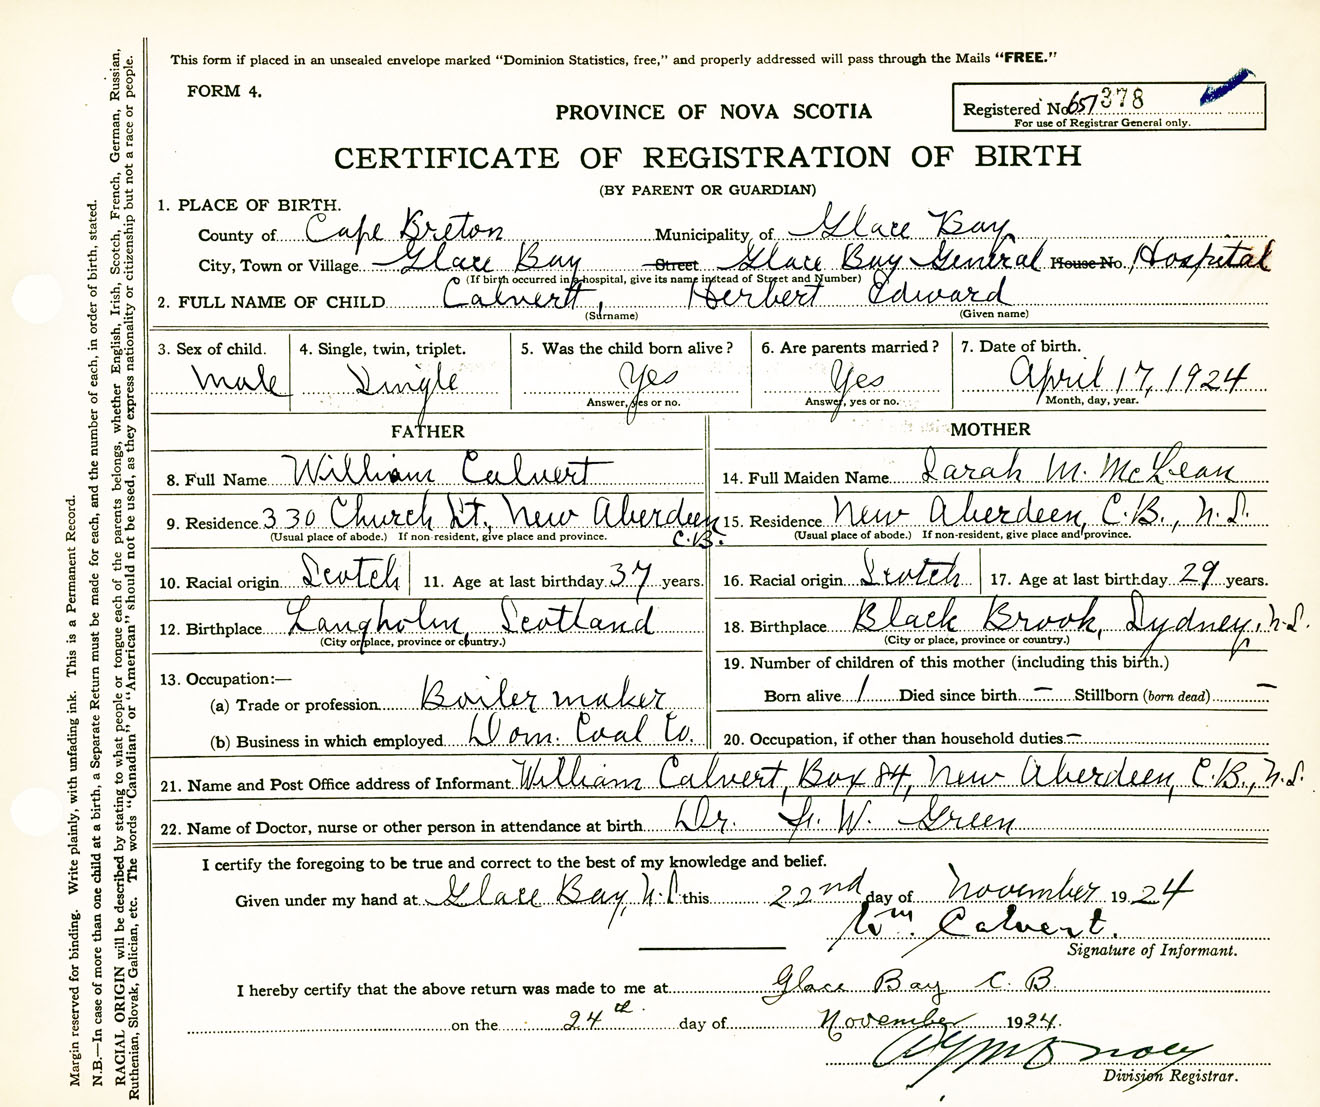 This form if placed in an unsealed envelope marked "Dominion Statistics, free," and properly addressed will pass through the Mails "FREE."
FORM 4.
PROVINCE OF NOVA SCOTIA
Registered No. 651378
For use of Registrar General only.
CERTIFICATE OF REGISTRATION OF BIRTH
(BY PARENT OR GUARDIAN)
1. PLACE OF BIRTH.
County of Cape Breton Municipality of Glace Bay
City, Town or Village Glace Bay Street Glace Bay General House No. Hospital
(If birth occurred in a hospital, give its name instead of Street and Number)
2. FULL NAME OF CHILD Calvert, Herbert Edward
(Surname) (Given name)
3. Sex of child. 4. Single, twin, triplet. 5. Was the child born alive? 6. Are parents married? 7. Date of birth.
Male Single Yes Yes April 17, 1924
Answer, yes or no. Answer, yes or no. Month, day, year.
FATHER MOTHER
8. Full Name William Calvert 14. Full Maiden Name Sarah M. McLean
9. Residence 330 Church St., New Aberdeen C.B. 15. Residence New Aberdeen, C.B., N.S.
(Usual place of abode.) If non-resident, give place and province. (Usual place of abode.) If non-resident, give place and province.
10. Racial origin Scotch 11. Age at last birthday 37 years. 16. Racial origin Scotch 17. Age at last birthday 29 years.
12. Birthplace Langholm, Scotland 18. Birthplace Black Brook, Sydney, N.S.
(City or place, province or country.) (City or place, province or country.)
13. Occupation:— 19. Number of children of this mother (including this birth.)
(a) Trade or profession Boiler maker Born alive 1 Died since birth — Stillborn (born dead) —
(b) Business in which employed Dom. Coal Co. 20. Occupation, if other than household duties —
21. Name and Post Office address of Informant William Calvert, Box 84, New Aberdeen, C.B., N.S.
22. Name of Doctor, nurse or other person in attendance at birth Dr. W. Green
I certify the foregoing to be true and correct to the best of my knowledge and belief.
Given under my hand at Glace Bay, N.S. this 22nd day of November 1924
Wm. Calvert.
Signature of Informant.
I hereby certify that the above return was made to me at Glace Bay C.B.
on the 24th day of November 1924.
Division Registrar.
Margin reserved for binding. Write plainly, with unfading ink. This is a Permanent Record.
N.B.—In case of more than one child at a birth, a Separate Return must be made for each, and the number of each, in order of birth, stated.
RACIAL ORIGIN will be described by stating to what people or tongue each of the parents belongs, whether English, Irish, Scotch, French, German, Russian,
Ruthenian, Slovak, Galician, etc. The words "Canadian" or "American" should not be used, as they express nationality or citizenship but not a race or people.